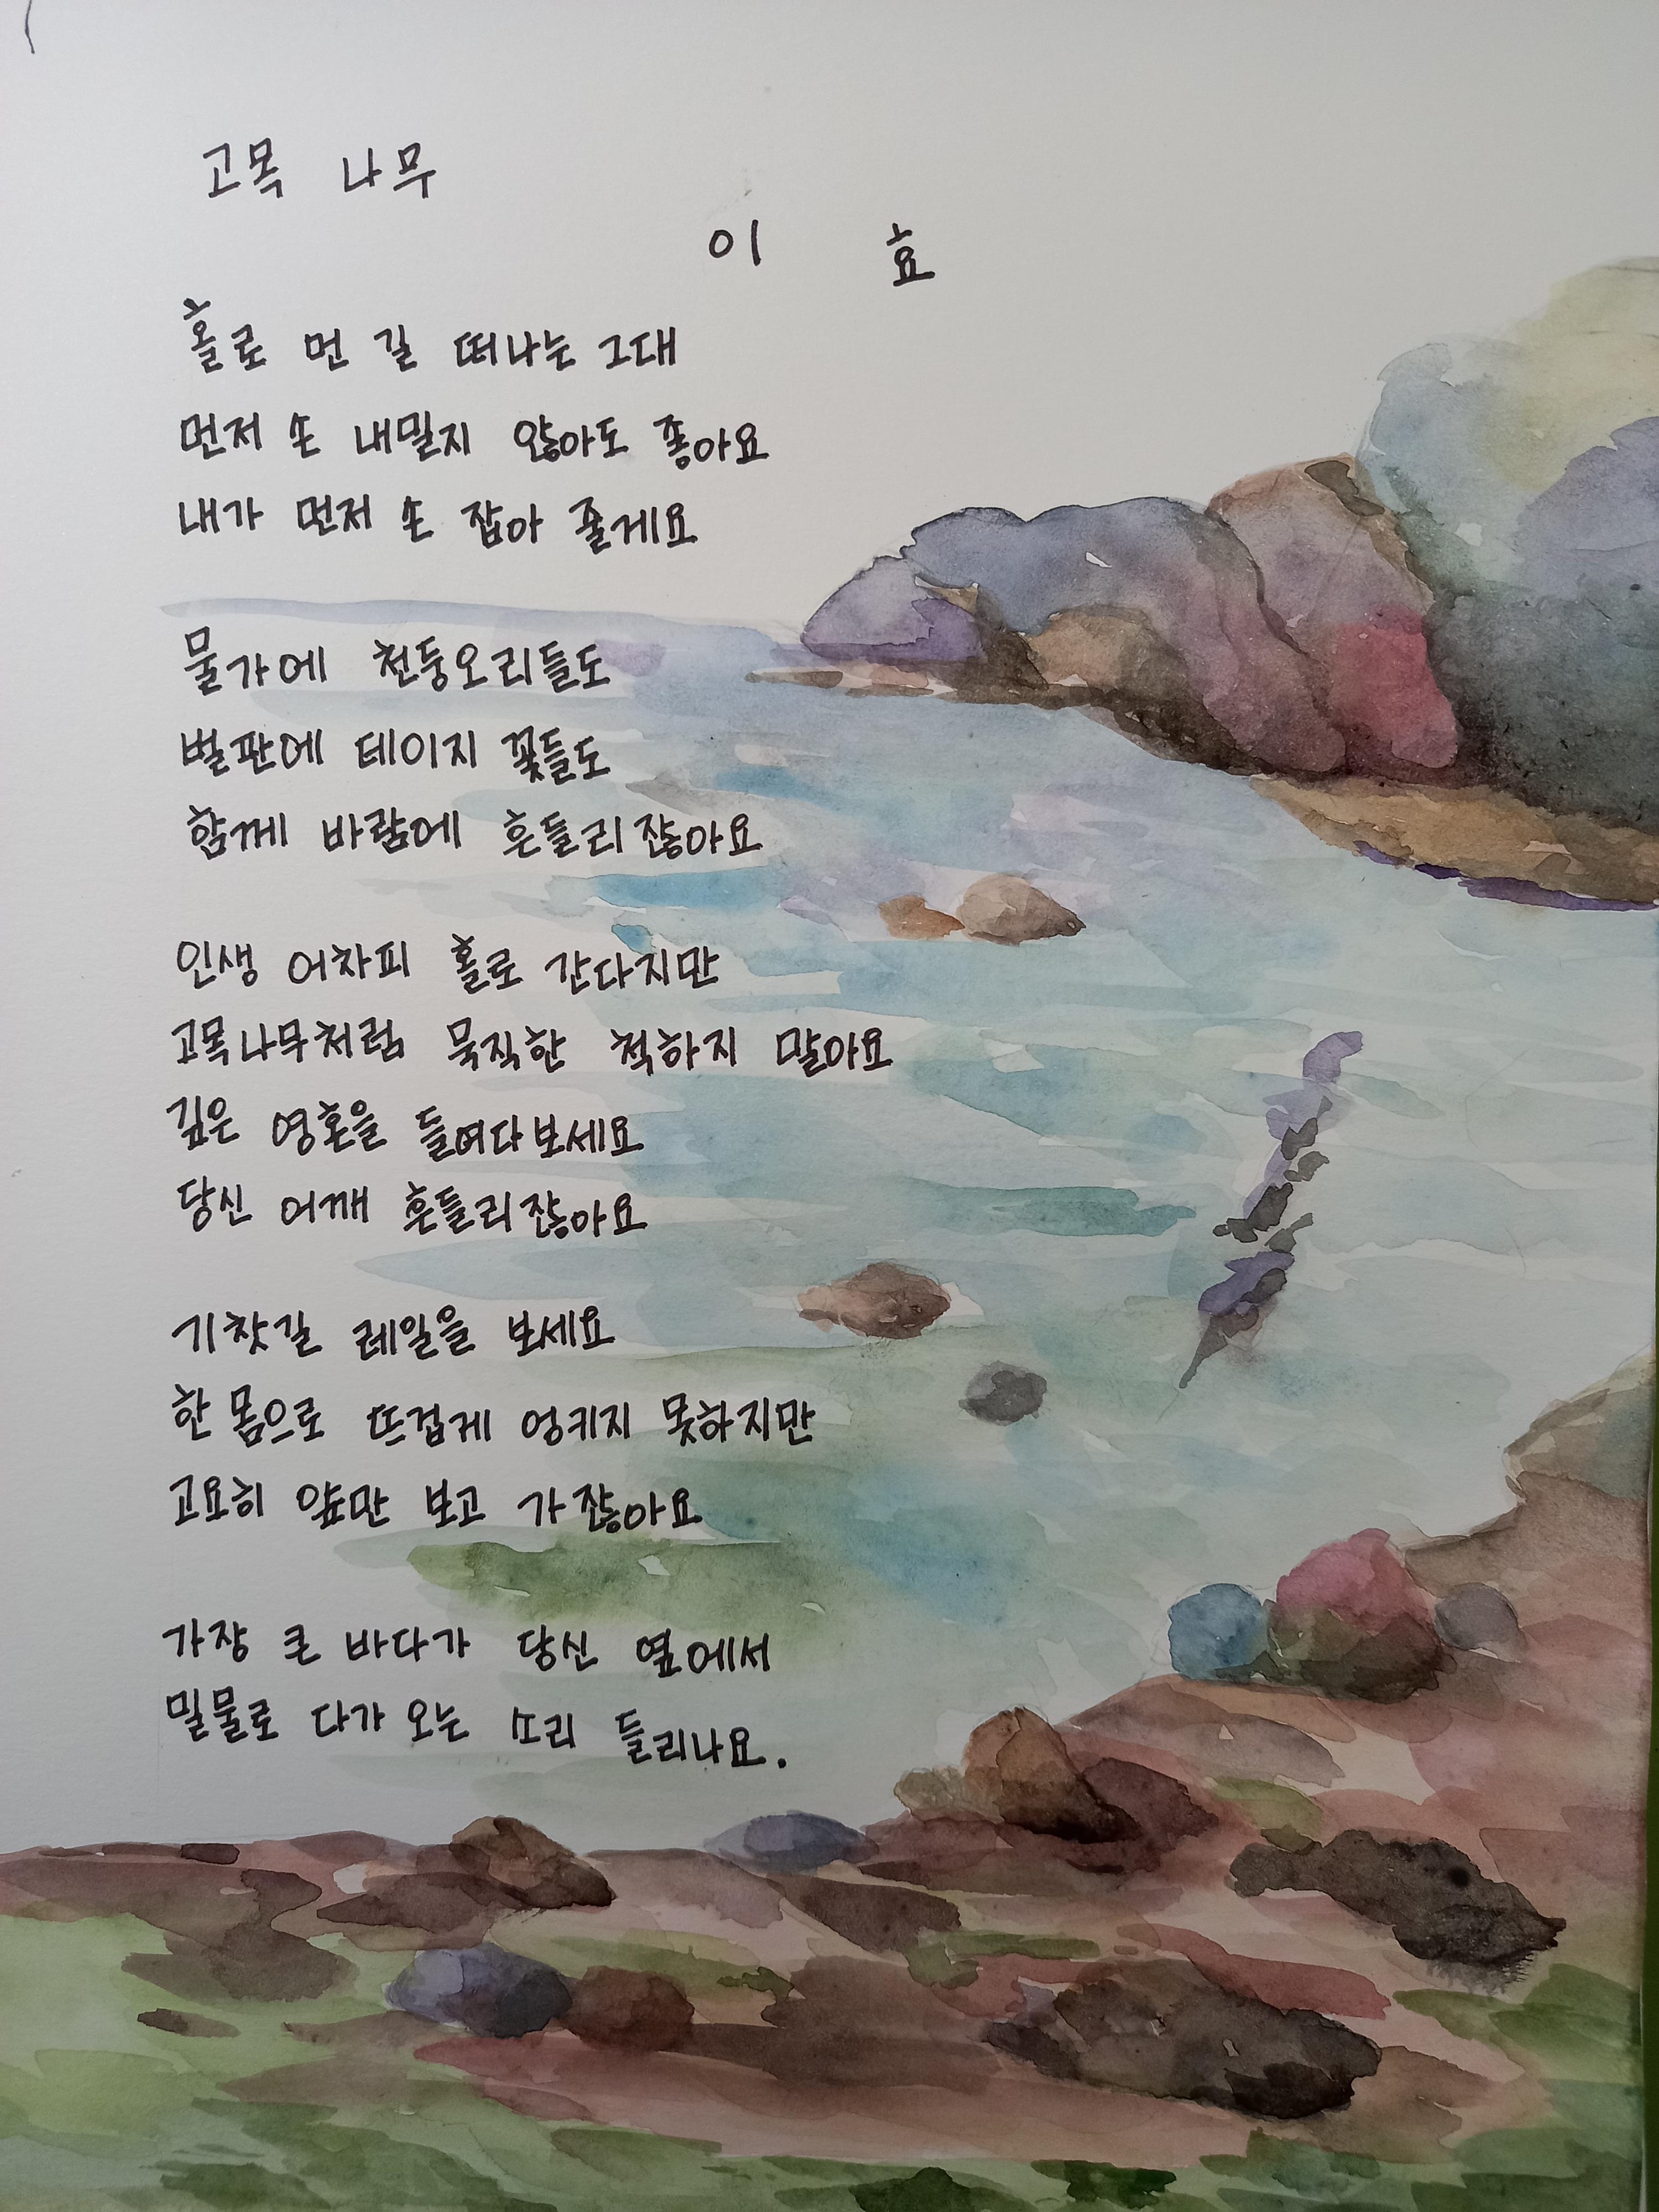 고목 나무
이 효
홀로 먼 길 떠나는 그대
먼저 손 내밀지 않아도 좋아요
내가 먼저 손 잡아 줄게요
물가에 천둥오리들도
벌판에 테이지 꽃들도
함께 바람에 흔들리잖아요
인생 어차피 홀로 간다지만
고목나무처럼 묵직한 척하지 말아요
깊은 영혼을 들여다보세요
당신 어깨 흔들리잖아요
기찻길 레일을 보세요
한 몸으로 뜨겁게 엉키지 못하지만
고요히 앞만 보고 가잖아요
가장 큰 바다가 당신 옆에서
밀물로 다가 오는 소리 들리나요.